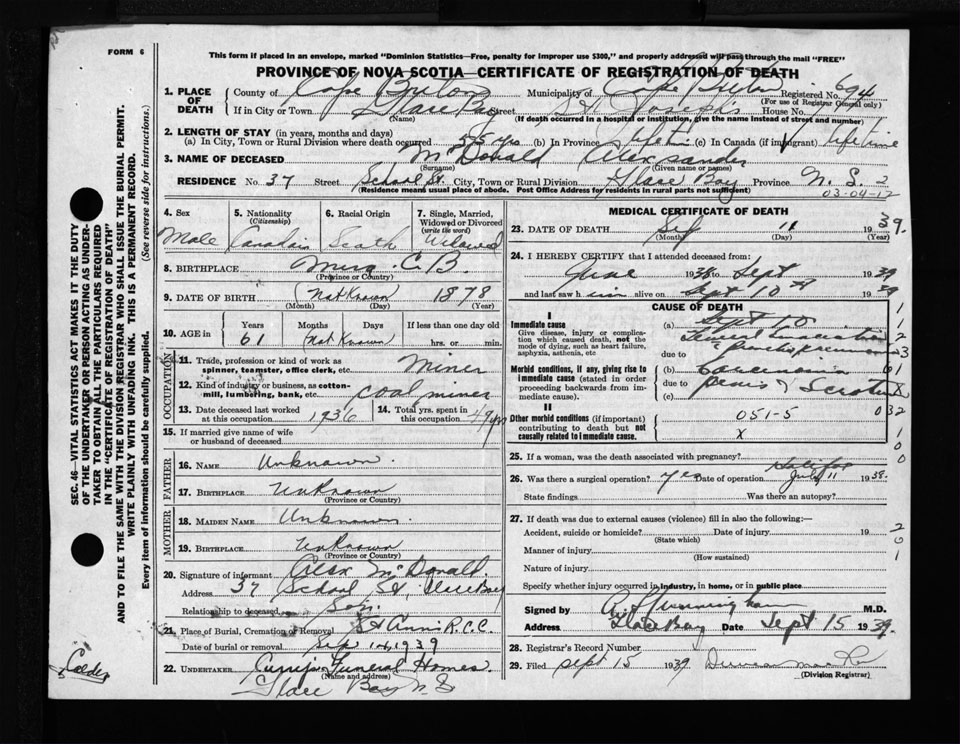 FORM 6
This form if placed in an envelope, marked "Dominion Statistics—Free, penalty for improper use $300," and properly addressed will pass through the mail "FREE"
PROVINCE OF NOVA SCOTIA—CERTIFICATE OF REGISTRATION OF DEATH
1. PLACE OF DEATH County of Cape Breton Municipality of Cape Breton Registered No. 694
(For use of Registrar General only)
If in City or Town Glace Bay Street St Joseph's House No.
(Name) (If death occurred in a hospital or institution, give the name instead of street and number)
2. LENGTH OF STAY (in years, months and days)
(a) In City, Town or Rural Division where death occurred yrs (b) In Province lifetime (c) In Canada (if immigrant) life time
3. NAME OF DECEASED McDonald Alexsander
(Surname) (Given name or names)
RESIDENCE No. 37 Street School St. City, Town or Rural Division Glace Bay Province N.S. 2
(Residence means usual place of abode. Post Office Address for residents in rural parts not sufficient) 03-04-12
4. Sex Male
5. Nationality (Citizenship) Canadian
6. Racial Origin Scotch
7. Single, Married, Widowed or Divorced (write the word) Widowed
8. BIRTHPLACE Mira C.B.
(Province or Country)
9. DATE OF BIRTH (Not Known) 1878
(Month) (Day) (Year)
10. AGE in Years 61 Months Days (Not Known) If less than one day old hrs. or min.
OCCUPATION
11. Trade, profession or kind of work as spinner, teamster, office clerk, etc. Miner
12. Kind of industry or business, as cotton-mill, lumbering, bank, etc. coal miner
13. Date deceased last worked at this occupation 1936
14. Total yrs. spent in this occupation 49 yrs
15. If married give name of wife or husband of deceased
FATHER
16. NAME Unknown.
17. BIRTHPLACE Unknown
(Province or Country)
MOTHER
18. MAIDEN NAME Unknown.
19. BIRTHPLACE Unknown
(Province or Country)
20. Signature of informant Alex McDonald.
Address 37 School St,
Relationship to deceased Son.
21. Place of Burial, Cremation or Removal St Anns R.C.C.
Date of burial or removal Sep 14, 1939
22. UNDERTAKER Funeral Homes.
(Name and address)
Glace Bay N S
MEDICAL CERTIFICATE OF DEATH
23. DATE OF DEATH Sep 11 1939.
(Month) (Day) (Year)
24. I HEREBY CERTIFY that I attended deceased from:
June 1938 to Sept 1939
and last saw him alive on Sept 10 th 1939
CAUSE OF DEATH
I
Immediate cause
Give disease, injury or complication which caused death, not the mode of dying, such as heart failure, asphyxia, asthenia, etc
(a) Sept 10
General
due to Broncho Pneumonia
Morbid conditions, if any, giving rise to immediate cause (stated in order proceeding backwards from immediate cause)
(b) carcinoma
due to penis & Scrotum
(c)
II
Other morbid conditions (if important) contributing to death but not causally related to immediate cause.
051-5 032
x
25. If a woman, was the death associated with pregnancy?
26. Was there a surgical operation? yes Date of operation Halifax July 11 1938.
State findings Was there an autopsy?
27. If death was due to external causes (violence) fill in also the following:—
Accident, suicide or homicide? Date of injury 19
(State which)
Manner of injury
(How sustained)
Nature of injury
Specify whether injury occurred in industry, in home, or in public place
Signed by M.D.
Address Glace Bay Date Sept 15 1939.
28. Registrar's Record Number
29. Filed Sept 15 1939
(Division Registrar)
SEC. 46—VITAL STATISTICS ACT MAKES IT THE DUTY OF THE UNDERTAKER OR PERSON ACTING AS UNDERTAKER TO OBTAIN ALL THE PARTICULARS REQUIRED IN THE "CERTIFICATE OF REGISTRATION OF DEATH"
AND TO FILE THE SAME WITH THE DIVISION REGISTRAR WHO SHALL ISSUE THE BURIAL PERMIT.
WRITE PLAINLY WITH UNFADING INK. THIS IS A PERMANENT RECORD.
Every item of information should be carefully supplied. (See reverse side for instructions.)